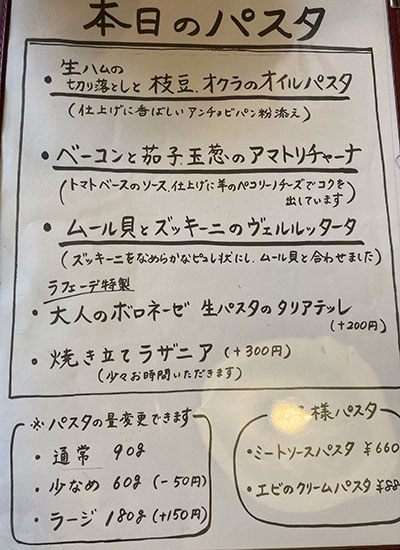 本日のパスタ
・生ハムの
切り落としと 枝豆、オクラのオイルパスタ
(仕上げに香ばしいアンチョビパン粉添え)
・ベーコンと茄子玉葱のアマトリチャーナ
(トマトベースのソース、仕上げに羊のペコリーノチーズでコクを
出しています)
・ムール貝とズッキーニのヴェルルッタータ
(ズッキーニをなめらかなピュレ状にし、ムール貝と合わせました)
ラフェーデ特製
・大人のボロネーゼ 生パスタのタリアテッレ
(+200円)
・焼き立てラザニア (+300円)
(少々お時間いただきます)
※パスタの量変更できます
・通常 90g
・少なめ 60g (-50円)
・ラージ 180g (+150円)
様パスタ
・ミートソースパスタ ¥660
・エビのクリームパスタ ¥88